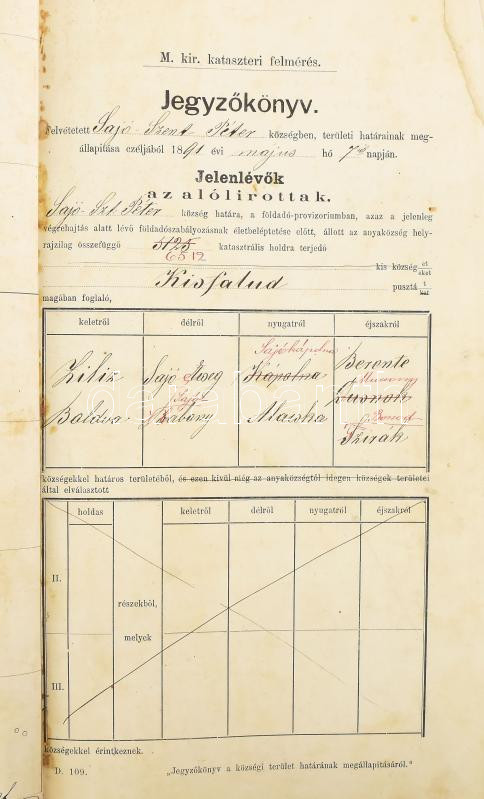 M. kir. kataszteri felmérés.
Jegyzőkönyv.
Felvétetett Sajó-Szent Péter községben, területi határainak meg-
állapítása czéljából 1891 évi május hó 7én napján.
Jelenlévők
az alólirottak.
Sajó-Szt Péter község határa, a földadó-provizoriumban, azaz a jelenleg
végrehajtás alatt lévő földadószabályozásnak életbeléptetése előtt, állott az anyaközség hely-
rajzilag összefüggő 5125 katasztrális holdra terjedő
6512
kis község et eket
Kisfalud pusztá t kat
magában foglaló,
keletről délről nyugatról éjszakról
Sajókápolna
Ziliz Sajó Kápolna Berente
Sajó
Boldva Bábony Alacska
Szirák
községekkel határos területéből, és ezen kivül még az anyaközségtől idegen községek területei
által elválasztott
holdas keletről délről nyugatról éjszakról
II.
részekből,
melyek
III.
községekkel érintkeznek.
D. 109. „Jegyzőkönyv a községi terület határának megállapításáról."